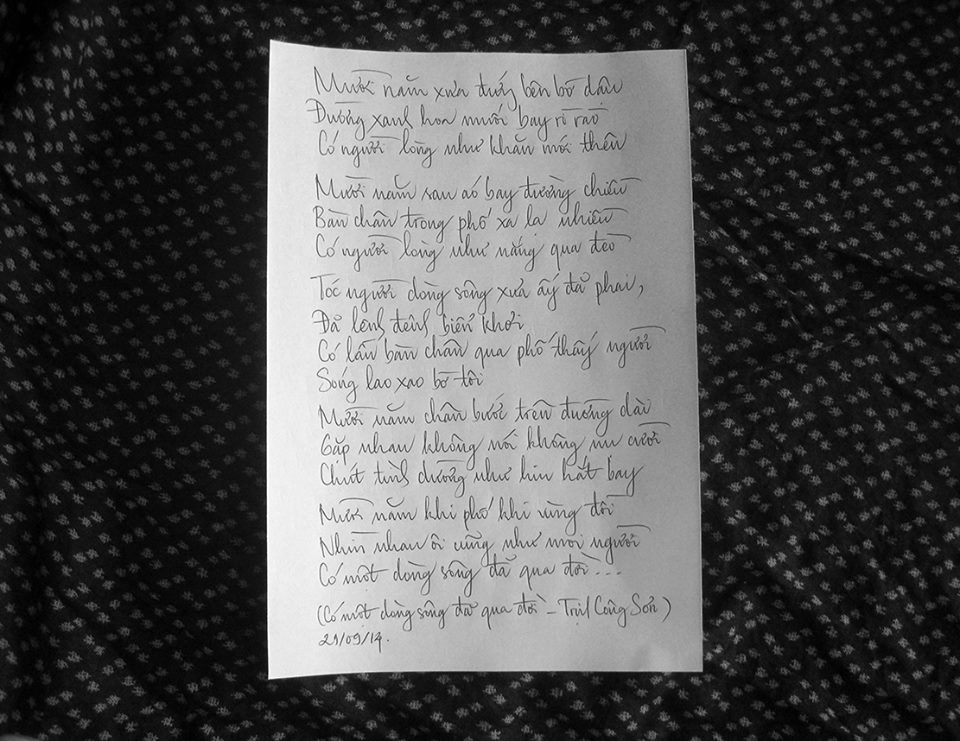 Mười năm xưa đứng bên bờ dâu
Đường xanh hoa muối bay rì rào
Có người lòng như khăn mới thêu
Mười năm sau áo bay đường chiều
Bàn chân trong phố xa lạ nhiều
Có người lòng như nắng qua đèo
Tóc người dòng sông xưa ấy đã phai,
Đã lênh đênh biển khơi
Có lần bàn chân qua phố thấy người
Sóng lao xao bờ tôi
Mười năm chân bước trên đường dài
Gặp nhau không nói không nụ cười
Chút tình dường như hiu hắt bay
Mười năm khi phố khi rừng đồi
Nhìn nhau ôi cũng như mọi người
Có một dòng sông đã qua đời...
(Có một dòng sông đã qua đời - Trịnh Công Sơn)
21/09/14.